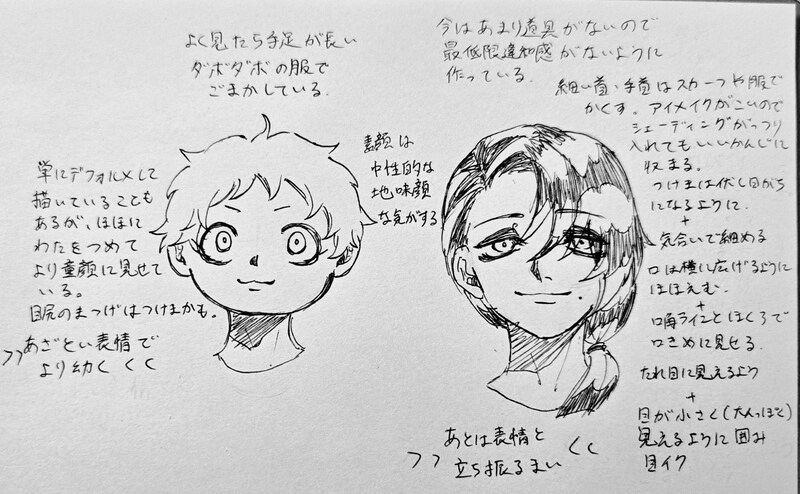 よく見たら手足が長い
ダボダボの服で
ごまかしている。
単にデフォルメして
描いていることも
あるが、ほほに
わたをつめて
より童顔に見せて
いる。
目尻のまつげはつけまかも。
>>あざとい表情で
より幼く <<
素顔は
中性的な
地味顔
な気がする
今はあまり道具がないので
最低限違和感がないように
作っている。
細い首・手首はスカーフや服で
かくす。アイメイクがこいので
シェーディングがっつり
入れてもいいかんじに
収まる。
つけまは伏し目がち
になるように。
+
気合いで細める
口は横に広げるように
ほほえむ。
+
口角ラインとほくろで
口きめに見せる。
たれ目に見えるよう
+
目が小さく(大人っぽく)
見えるように囲み
目イク
あとは表情と
>> 立ち振るまい <<